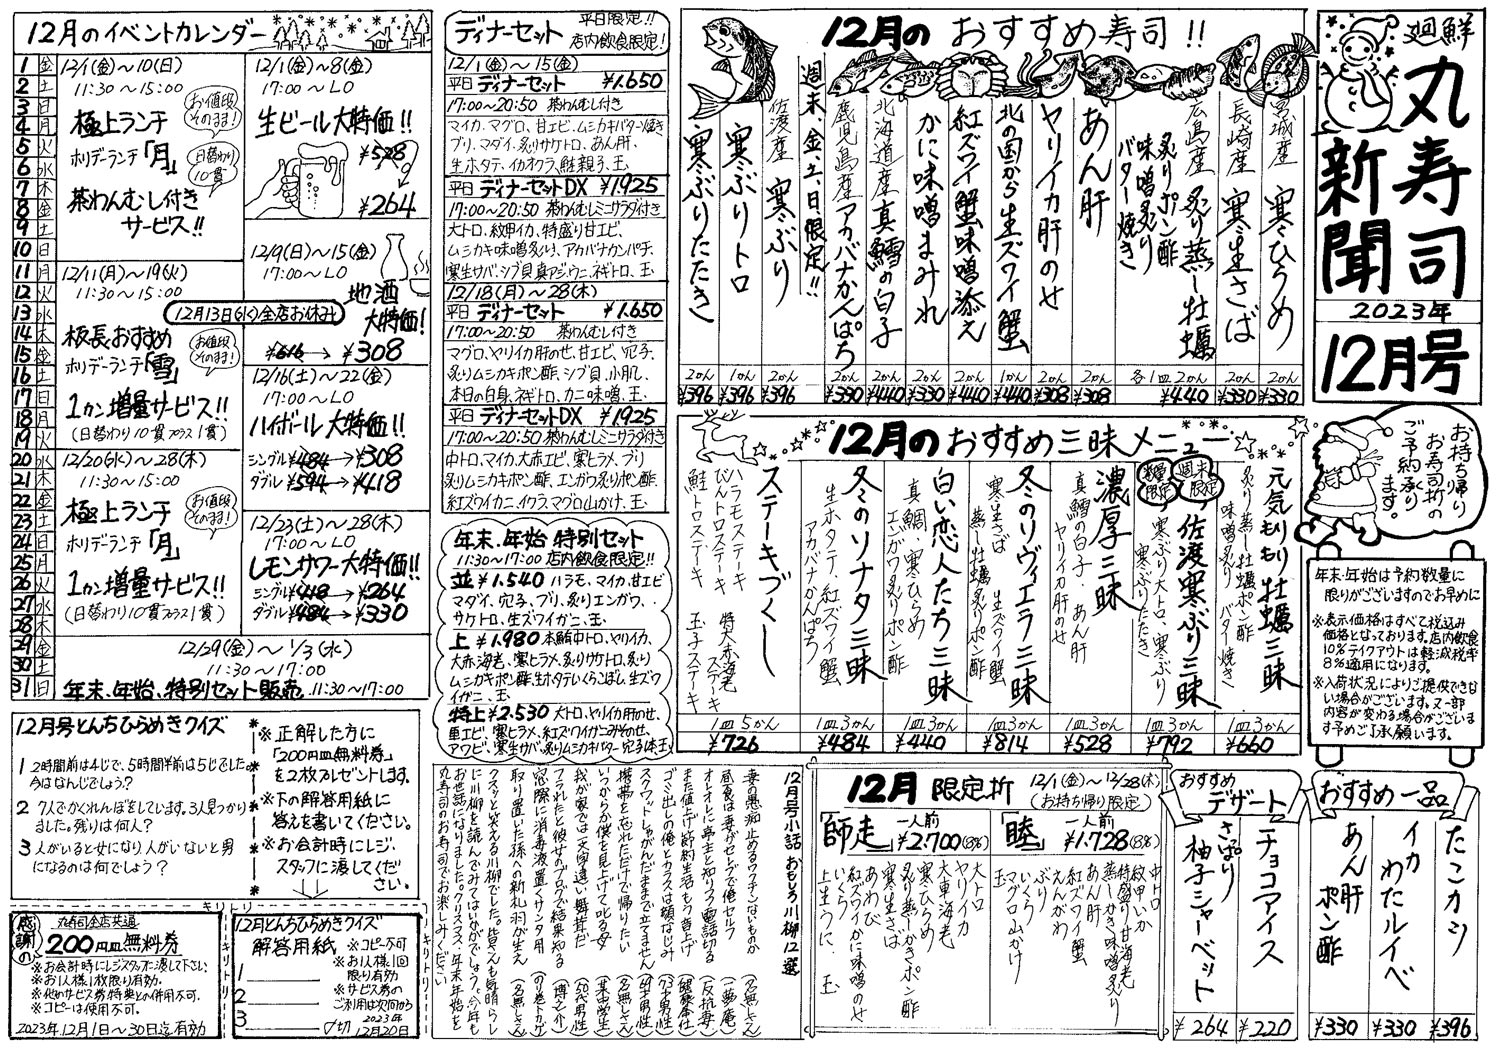 廻鮮
丸寿司
新聞
2023年
12月号
お持ち帰り
お寿司折の
ご予約承り
ます。
年末、年始は予約数量に
限りがございますのでお早めに
※表示価格はすべて税込み
価格となっております。店内飲食
10%テイクアウトは軽減税率
8%適用になります。
※入荷状況によりご提供できな
い場合がございます。又一部
内容が変わる場合がございま
す予めご了承願います。
12月のおすすめ寿司!!
宮城産 寒ひらめ
2かん
¥330
長崎産 寒生さば
2かん
¥330
広島産 炙り蒸し牡蠣
炙りポン酢
味噌炙り
バター焼き
各1皿2かん
¥440
あん肝
2かん
¥308
ヤリイカ肝のせ
2かん
¥308
北の国から生ズワイ蟹
1かん
¥440
紅ズワイ蟹味噌添え
2かん
¥440
かに味噌まみれ
2かん
¥330
北海道産真鱈の白子
2かん
¥440
鹿児島産アカバナかんぱち
2かん
¥330
週末、金、土、日限定!!
佐渡産 寒ぶり
2かん
¥396
寒ぶりトロ
1かん
¥396
寒ぶりたたき
2かん
¥396
12月のおすすめ三昧メニュー
元気もりもり牡蠣三昧
炙り蒸し牡蠣ポン酢
味噌炙り、バター焼き
1皿3かん
¥660
週末限定
数量限定
佐渡寒ぶり三昧
寒ぶり大トロ、寒ぶり
寒ぶりたたき
1皿3かん
¥792
濃厚三昧
真鱈の白子、あん肝
ヤリイカ肝のせ
1皿3かん
¥528
冬のリヴィエラ三昧
寒生さば 生ズワイ蟹
蒸し牡蠣炙りポン酢
1皿3かん
¥814
白い恋人たち三昧
真鯛、寒ひらめ
エンガワ炙りポン酢
1皿3かん
¥440
冬のソナタ三昧
生ホタテ、紅ズワイ蟹
アカバナかんぱち
1皿3かん
¥484
ステーキづくし
ハラモステーキ 特大赤海老
びんトロステーキ ステーキ
鮭トロステーキ 玉子ステーキ
1皿5かん
¥726
12月のイベントカレンダー
1 金
2 土
3 日
4 月
5 火
6 水
7 木
8 金
9 土
10 日
11 月
12 火
13 水
14 木
15 金
16 土
17 日
18 月
19 火
20 水
21 木
22 金
23 土
24 日
25 月
26 火
27 水
28 木
29 金
30 土
31 日
12/1(金)~10(日)
11:30~15:00
極上ランチ
お値段そのまま!
ホリデーランチ「月」
日替わり10貫
茶わんむし付き
サービス!!
12/11(月)~19(火)
11:30~15:00
12月13日(水)全店お休み
板長おすすめ
ホリデーランチ「雪」
お値段そのまま!
1カン増量サービス!!
(日替わり10貫プラス1貫)
12/20(水)~28(木)
11:30~15:00
極上ランチ
お値段そのまま!
ホリデーランチ「月」
1カン増量サービス!!
(日替わり10貫プラス1貫)
12/1(金)~8(金)
17:00~LO
生ビール大特価!!
¥528
¥264
12/9(日)~15(金)
17:00~LO
地酒
大特価!
¥616→¥308
12/16(土)~22(金)
17:00~LO
ハイボール大特価!!
シングル¥484→¥308
ダブル¥594→¥418
12/23(土)~28(木)
17:00~LO
レモンサワー大特価!!
シングル¥418→¥264
ダブル¥484→¥330
12/29(金)~1/3(水)
11:30~17:00
年末、年始、特別セット販売 11:30~17:00
ディナーセット
平日限定!!
店内飲食限定!
12/1(金)~15(金)
平日ディナーセット ¥1.650
17:00~20:50 茶わんむし付き
マイカ、マグロ、甘エビ、ムシカキバター焼き
ブリ、マダイ、炙りサケトロ、あん肝、
生ホタテ、イカオクラ、鮭親子、玉
平日ディナーセットDX ¥1925
17:00~20:50 茶わんむしミニサラダ付き
大トロ、紋甲イカ、特盛り甘エビ、
ムシカキ味噌炙り、アカバナカンパチ、
寒生サバ、シブ貝、真アジ、ウニ、ネギトロ、玉
12/18(月)~28(木)
平日ディナーセット ¥1.650
17:00~20:50 茶わんむし付き
マグロ、ヤリイカ肝のせ、甘エビ、穴子、
炙りムシカキポン酢、シブ貝、小肌、
本日の白身、ネギトロ、カニ味噌、玉、
平日ディナーセットDX ¥1925
17:00~20:50 茶わんむしミニサラダ付き
中トロ、マイカ、大赤エビ、寒ヒラメ、ブリ
炙りムシカキポン酢、エンガワ炙りポン酢、
紅ズワイカニ、イクラ、マグロ山かけ、玉、
年末、年始 特別セット
11:30~17:00 店内飲食限定!!
並¥1.540 ハラモ、マイカ、甘エビ
マダイ、穴子、ブリ、炙りエンガワ、
サケトロ、生ズワイガニ、玉
上 ¥1.980 本鮪中トロ、ヤリイカ、
大赤海老、寒ヒラメ、炙りサケトロ、炙り
ムシカキポン酢、生ホタテいくらこぼし、生ズワ
イガニ、玉
特上¥2.530 大トロ、ヤリイカ肝のせ、
車エビ、寒ヒラメ、紅ズワイガニみそのせ、
アワビ、寒生サバ、炙りムシカキバター、穴子1本、玉
12月号とんちひらめきクイズ
1 2時間前は4じで、5時間半前は5じでした。
今はなんじでしょう?
2 7人でかくれんぼをしています。3人見つかり
ました。残りは何人?
3 人がいると女になり人がいないと男
になるのは何でしょう?
※正解した方に
「200円皿無料券」
を2枚プレゼントします。
※下の解答用紙に
答えを書いてください。
※お会計時にレジ、
スタッフに渡してくだ
さい。
キリトリ
感謝の
丸寿司全店共通
200円皿無料券
※お会計時にレジスタッフに渡して下さい。
※お1人様1枚限り有効。
※他のサービス券特典との併用不可。
※コピーは使用不可。
2023年12月1日~30日迄有効
キリトリ
12月とんちひらめきクイズ
解答用紙
1
2
3
※コピー不可
※お1人様1回
限り有効
※サービス券の
ご利用は次回から
〆切 2023年12月20日
キリトリ
12月号小話 おもしろ川柳12選
妻の愚痴止めるワクチンないものか (名無しさん)
昼食は妻がセレブで俺セルフ (一夢庵)
オレオレに亭主と知りつつ電話切る (反抗妻)
また値上げ節約生活もう音上げ (健康奉仕)
ゴミ出しの俺とカラスは顔なじみ (73才男性)
スクワットしゃがんだままで立てません (64才男性)
携帯を忘れただけで帰りたい (名無しさん)
いつからか僕を見上げて叱る母 (某中学生)
我が家では文字通り違い舞茸だ (50代男性)
フラれたと彼女のブログで結果知る (博之介)
窓際に消毒液置くサンタ用 (の巻トカゲ)
取り置いた孫の新札羽が生え (名無しさん)
クスッと笑える川柳でした。皆さんも気晴らし
に川柳を読んでみてはいかがでしょう。今年も
お世話になりました。クリスマス・年末、年始を
丸寿司のお寿司でお楽しみください
12月 限定折
12/1(金)~12/28(木)
(お持ち帰り限定)
「師走」一人前 ¥2.700(8%)
大トロ
ヤリイカ
大車海老
寒ひらめ
炙り蒸しかきポン酢
寒生さば
あわび
紅ズワイかに味噌のせ
いくら
上生うに、玉
「睦」一人前 ¥1.728(8%)
中トロ
紋甲いか
特盛り甘海老
蒸しかき味噌炙り
あん肝
紅ズワイ蟹
えんがわ
ぶり
いくら
マグロ山かけ
玉
おすすめ
デザート
チョコアイス
¥220
さっぱり
柚子シャーベット
¥264
おすすめ一品
たこカラ
¥396
イカわたルイベ
¥330
あん肝ポン酢
¥330